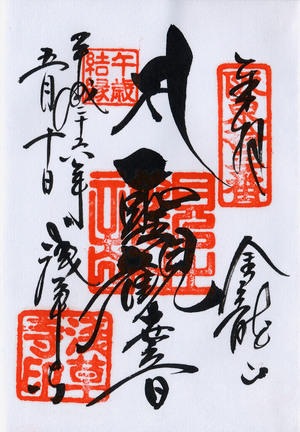 奉拝
金龍山
聖観世音
午歳
結縁
平成二十六年
五月十日
浅草寺
浅草
寺印